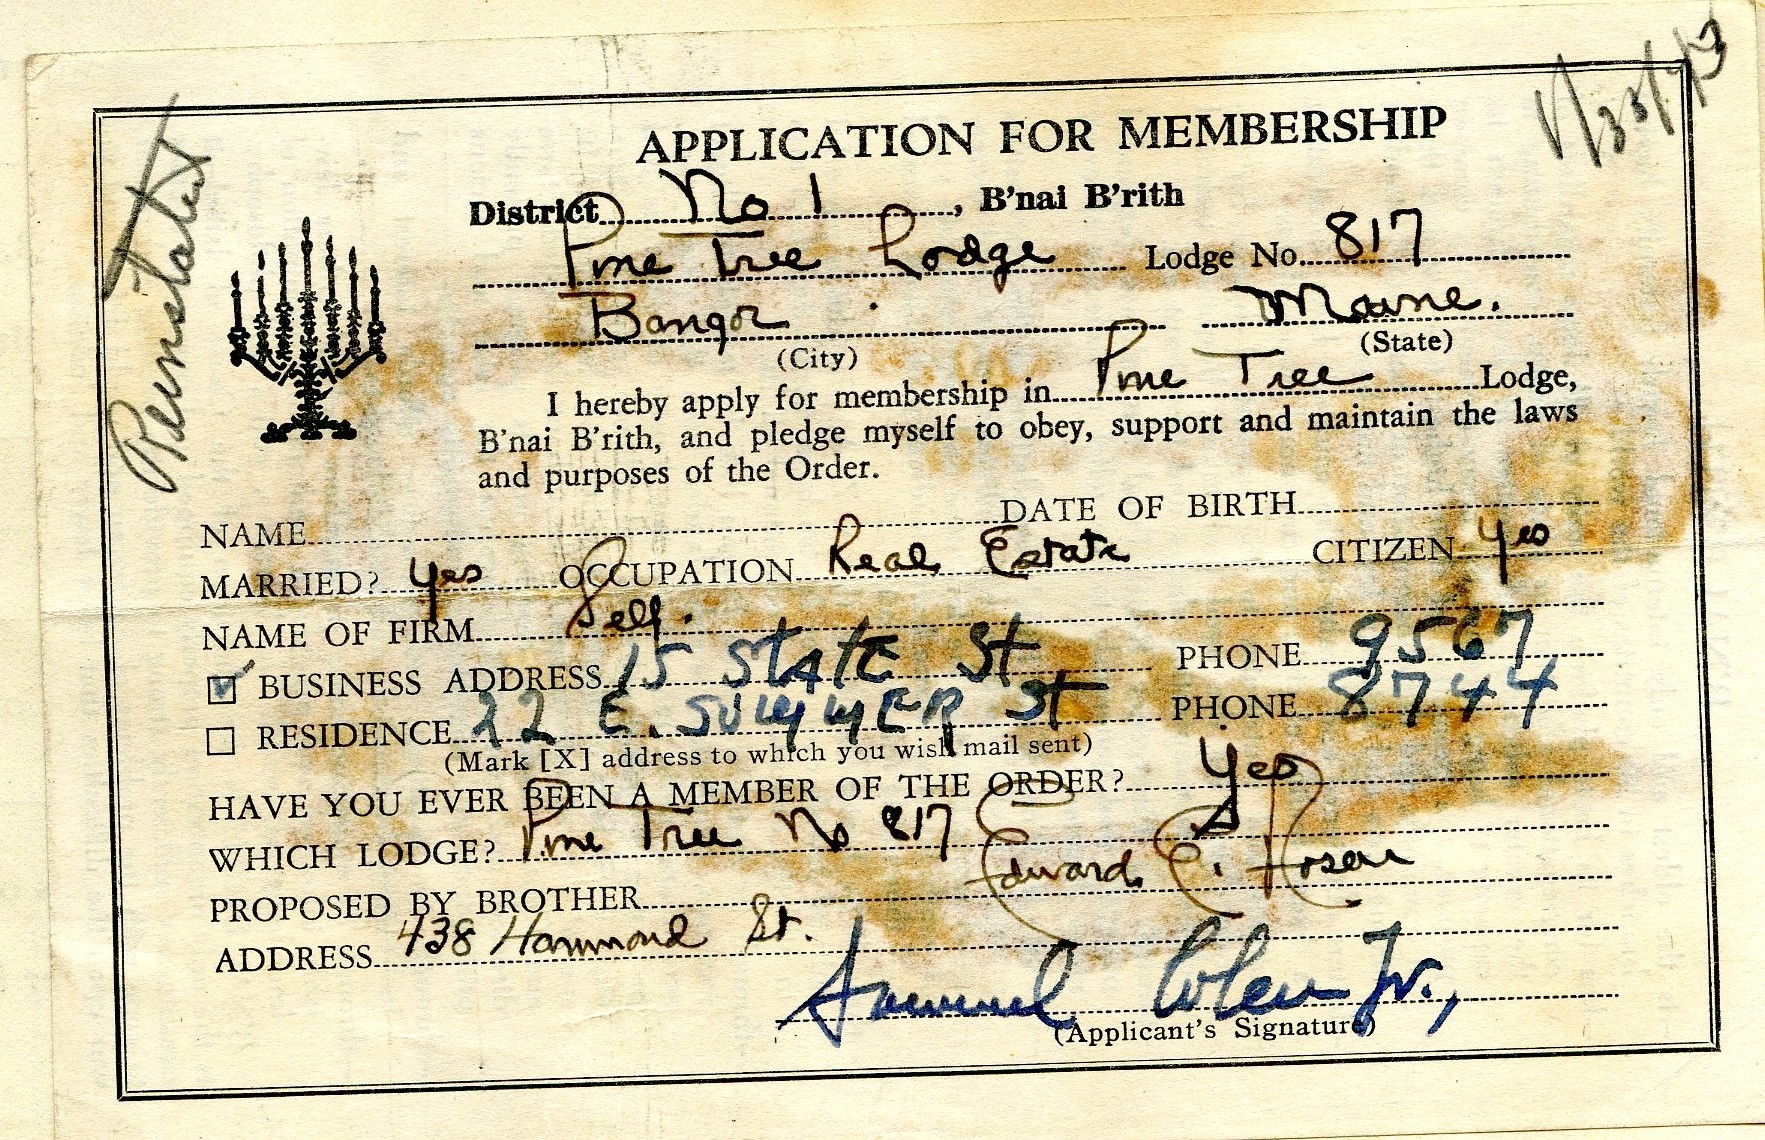 Reinstated
APPLICATION FOR MEMBERSHIP
District No 1, B'nai B'rith
Pine Tree Lodge Lodge No. 817
Bangor Maine.
(City) (State)
I hereby apply for membership in Pine Tree Lodge,
B'nai B'rith, and pledge myself to obey, support and maintain the laws
and purposes of the Order.
NAME DATE OF BIRTH
MARRIED? Yes OCCUPATION Real Estate CITIZEN Yes
NAME OF FIRM Self.
BUSINESS ADDRESS 15 STATE St PHONE 9567
RESIDENCE 22 E. SUMMER St PHONE 8744
(Mark [X] address to which you wish mail sent)
HAVE YOU EVER BEEN A MEMBER OF THE ORDER? Yes
WHICH LODGE? Pine Tree No 817
PROPOSED BY BROTHER Edward C. Rosen
ADDRESS 438 Hammond St.
Samuel Cohen Jr.,
(Applicant's Signature)